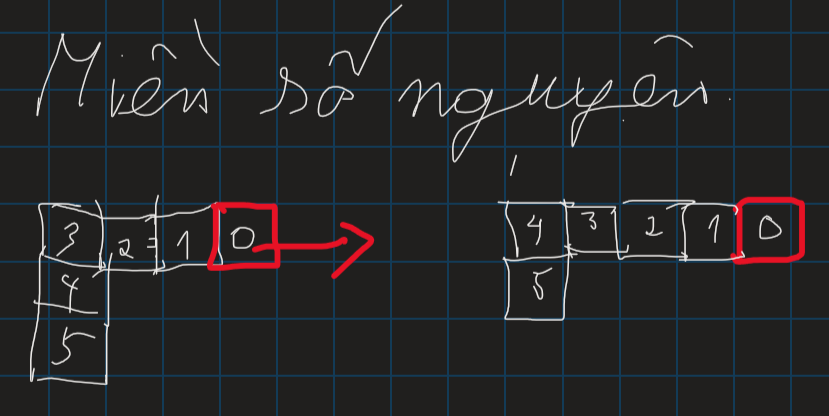 Miền số nguyên.
3 2 1 0 4 3 2 1 0
4 5
5